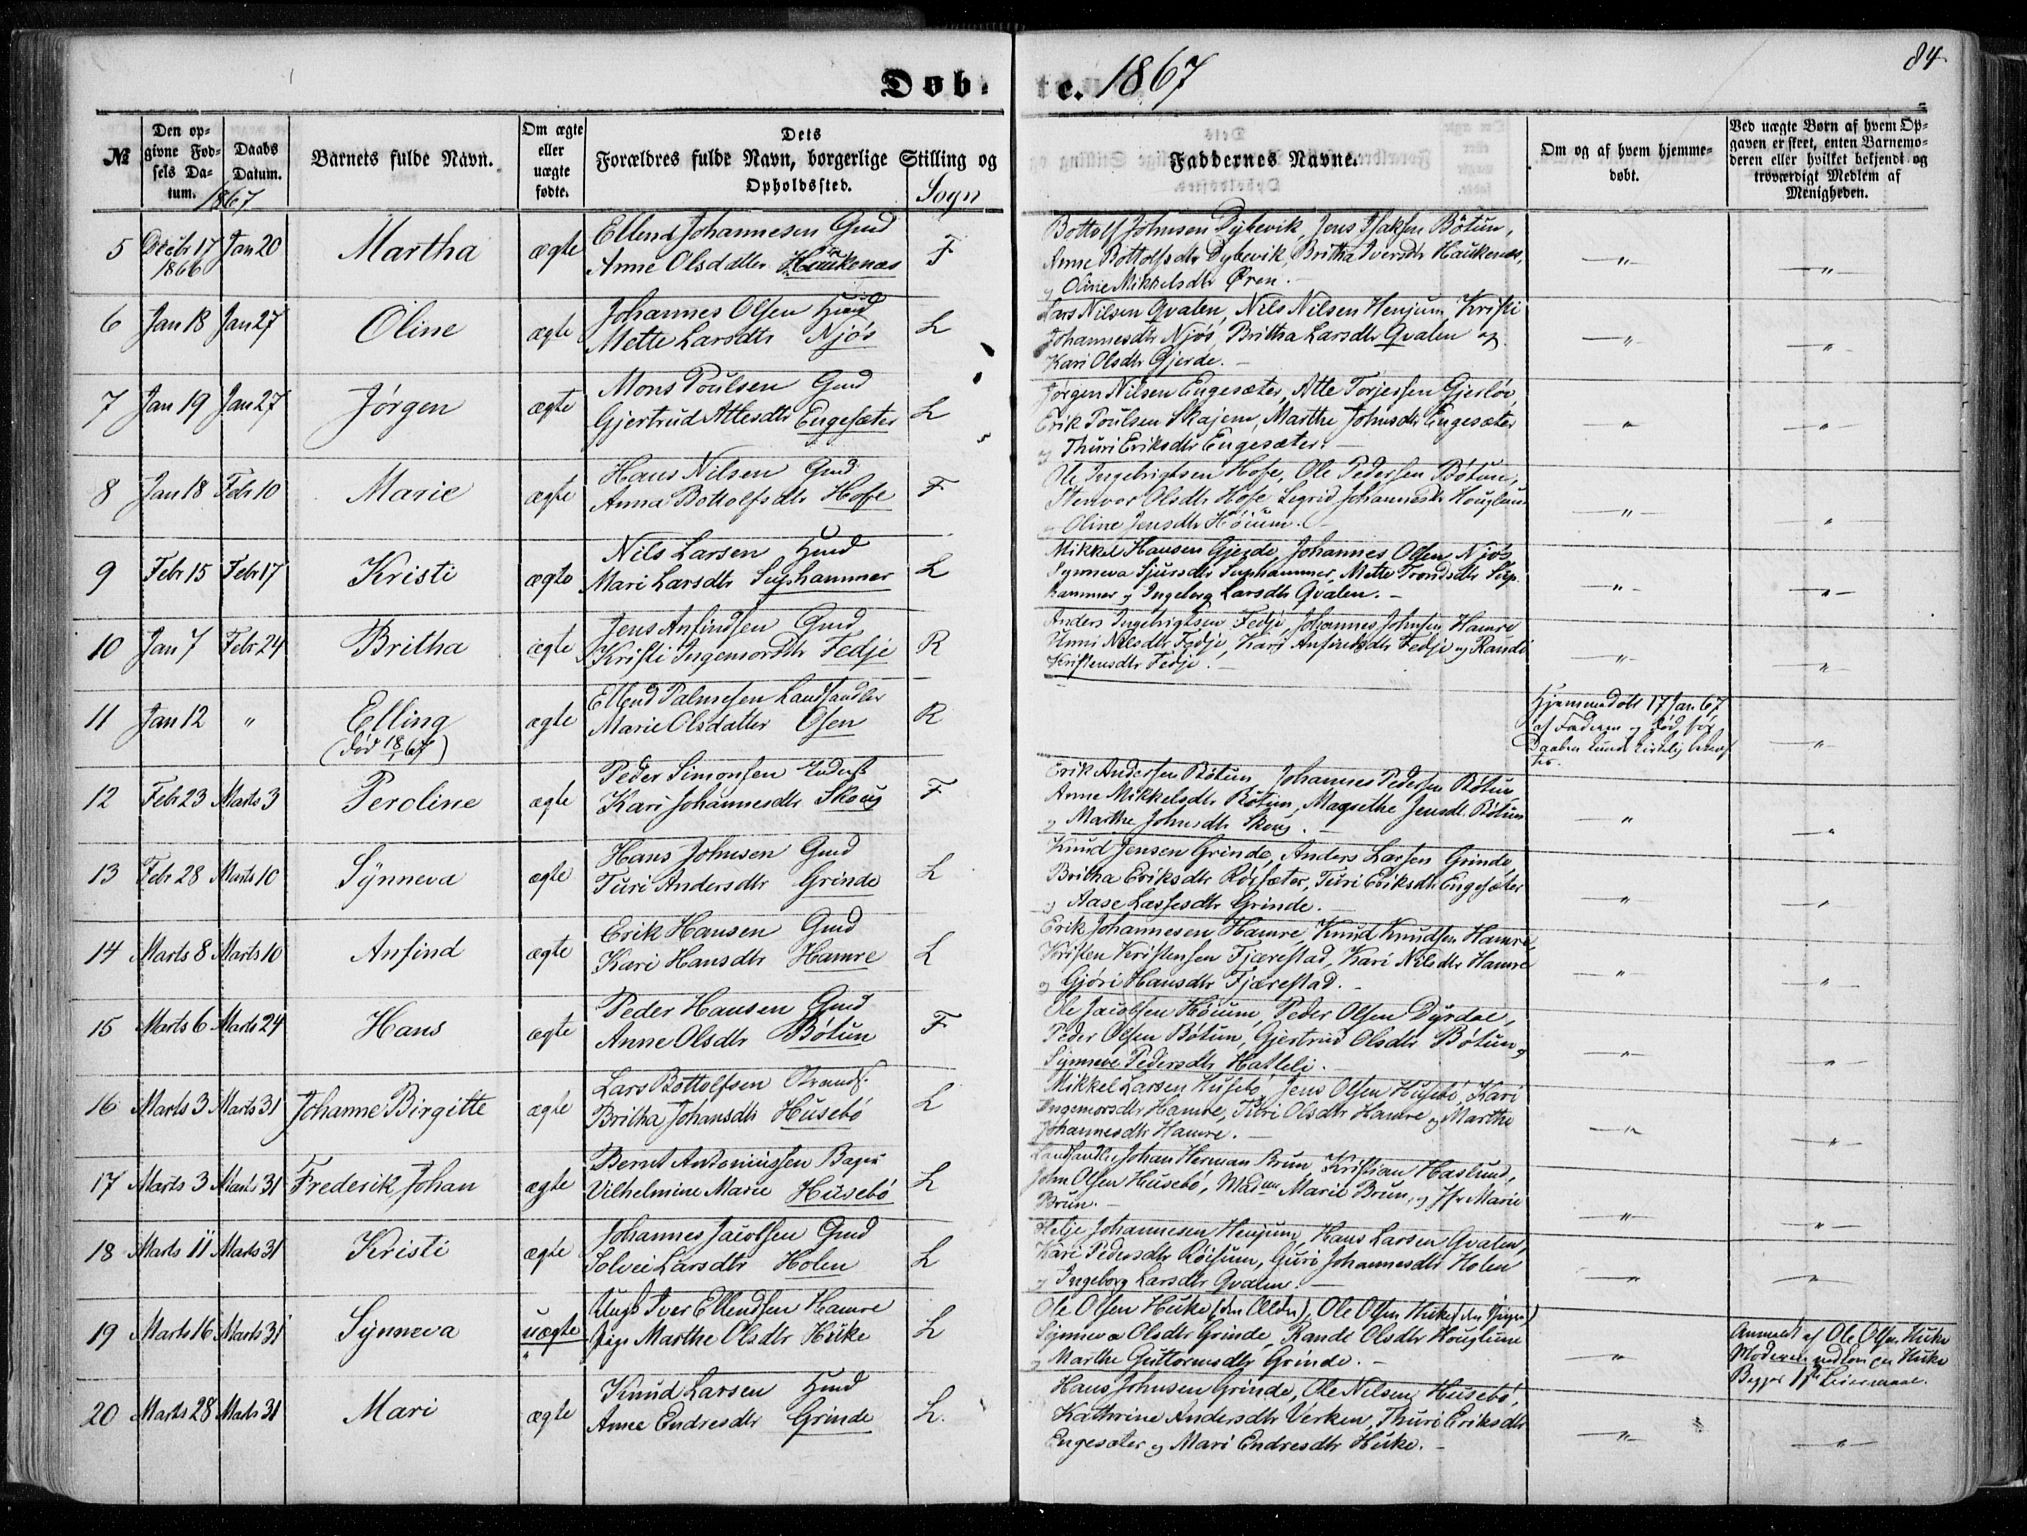 84
Døbte. 1867
№
Den opgivne Fødsels Datum.
Daabs Datum.
Barnets fulde Navn.
Om ægte eller uægte fødte.
Dets Forældres fulde Navn, borgerlige Stilling og Opholdssted.
Sogn
Faddernes Navne.
Om og af hvem hjemmedøbt.
Ved uægte Børn af hvem Opgaven er skeet, enten Barnemoderen eller hvilket bekjendt og troværdigt Medlem af Menigheden.
1867
5 Decbr 17 1866 Jan 20 Martha ægte
Ellend Johannesen Gmd
Anne Olsdatter Haukenæs F
Bottolf Johnsen Dybevik, Jens Isaksen Bøtun,
Anne Bottolfsdtr Dybevik, Britha Iversdtr Haukenæs,
og Oline Mikkelsdtr Øren.
6 Jan 18 Jan 27 Oline ægte
Johannes Olsen Hmd
Mette Larsdtr Njøs L
Lars Nilsen Qvalen, Nils Nilsen Henjum, Kristi
Johannesdtr Njøs, Britha Larsdtr Qvalen og
Kari Olsdtr Gjerde.
7 Jan 19 Jan 27 Jørgen ægte
Mons Poulsen Gmd
Gjertrud Atlesdtr Engesæter L
Jørgen Nilsen Engesæter, Atle Torjessen Gjerløv,
Erik Poulsen Skajem, Marthe Johnsdtr Engesæter
og Thuri Eriksdtr Engesæter.
8 Jan 18 Febr 10 Marie ægte
Hans Nilsen Gmd
Anna Bottolfsdtr Hofe F
Ole Ingebrigtsen Hofe, Ole Pedersen Bøtun,
Stenvor Olsdtr Hofe, Sigrid Johannesdtr Houglum
og Oline Jensdtr Høium.
9 Febr 15 Febr 17 Kristi ægte
Nils Larsen Hmd
Mari Larsdtr Suphammer L
Mikkel Hansen Gjerde, Johannes Olsen Njøs
Synneva Sjursdtr Suphammer, Mette Trondsdtr Suphammer og Ingeborg Larsdtr Qvalen.
10 Jan 7 Febr 24 Britha ægte
Jens Anfindsen Gmd
Kristi Ingemorsdtr Fedje R
Anders Ingebrigtsen Fedje, Johannes Johnsen Hamre
Unni Nilsdtr Fedje, Kari Anfindsdtr Fedje og Randi
Kristensdtr Fedje.
11 Jan 12 " Elling ægte
(død 18/1 67)
Ellend Palmesen Landhandler
Marie Olsdatter Osen R
Hjemmedøbt 17 Jan 67
af Faderen og død før
Daaben kunde kirkelig bekræftes.
12 Febr 23 Marts 3 Peroline ægte
Peder Simonsen
Kari Johannesdtr Skoug F
Erik Andersen Bøtun, Johannes Pedersen Bøtun
Anne Mikkelsdtr Bøtun, Magrethe Jensdtr Bøtun
og Marthe Johnsdtr Skoug.
13 Febr 28 Marts 10 Synneva ægte
Hans Johnsen Gmd
Turi Andersdtr Grinde L
Knud Jensen Grinde, Anders Larsen Grinde
Britha Eriksdtr Røisæter, Turi Eriksdtr Engesæter
og Aase Lassesdtr Grinde.
14 Marts 8 Marts 10 Anfind ægte
Erik Hansen Gmd
Kari Hansdtr Hamre L
Erik Johannesen Hamre, Knud Knudsen Hamre,
Kristen Kristensen Fjærestad, Kari Nilsdtr Hamre
og Gjøri Hansdtr Fjærestad.
15 Marts 6 Marts 24 Hans ægte
Peder Hansen Gmd
Anne Olsdtr Bøtun F
Ole Jacobsen Høium, Peder Olsen Dyrdal,
Peder Olsen Bøtun, Gjertrud Olsdtr Bøtun og
Synneve Pedersdtr Hatleli.
16 Marts 3 Marts 31 Johanne Birgitte ægte
Lars Bottolfsen Strands.
Britha Johansdtr Husebø L
Mikkel Larsen Husebø, Jens Olsen Husebø, Kari
Ingemorsdtr Hamre, Turi Olsdtr Hamre og Marthe
Johannesdtr Hamre.
17 Marts 3 Marts 31 Frederik Johan ægte
Bernt Antoniussen Bager
Vilhelmine Marie Husebø L
Landhandler Johan Herman Brun, Kristian Haslund,
John Olsen Husebø, Mad. Marie Brun, og Jfr Marie
Brun.
18 Marts 11 Marts 31 Kristi ægte
Johannes Jacobsen Gmd
Solvei Larsdtr Holen L
Helje Johannesen Henjum, Hans Larsen Qvalen,
Kari Pedersdtr Røisum, Guri Johannesdtr Holen
og Ingeborg Larsdtr Qvalen.
19 Marts 16 Marts 31 Synneva uægte
Ungk Iver Ellendsen Hamre
Pige Marthe Olsdtr Huke L
Ole Olsen Huke (den Ældre), Ole Olsen Huke (den Yngre)
Synneva Olsdtr Grinde, Randi Olsdtr Houglum
og Marthe Guttormsdtr Grinde.
Anmeldt af Ole Olsen Huke
Moderen
Begges 1ste Leiermaal.
20 Marts 28 Marts 31 Mari ægte
Knud Larsen Hmd
Anne Endresdtr Grinde L.
Hans Johnsen Grinde, Ole Nilsen Husebø,
Kathrine Andersdtr Verken, Thuri Eriksdtr
Engesæter og Mari Endresdtr Huke.